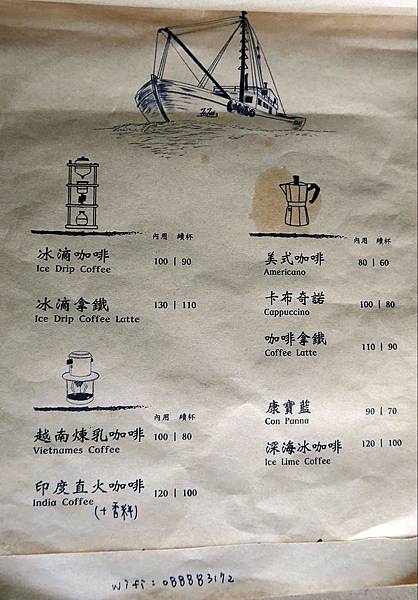 內用 續杯
冰滴咖啡 100 | 90
Ice Drip Coffee
冰滴拿鐵 130 | 110
Ice Drip Coffee Latte
內用 續杯
越南煉乳咖啡 100 | 80
Vietnames Coffee
印度直火咖啡 120 | 100
India Coffee
(+香料)
內用 續杯
美式咖啡 80 | 60
Americano
卡布奇諾 100 | 80
Cappuccino
咖啡拿鐵 110 | 90
Coffee Latte
康寶藍 90 | 70
Con Panna
深海冰咖啡 120 | 100
Ice Lime Coffee
wifi : 088883172